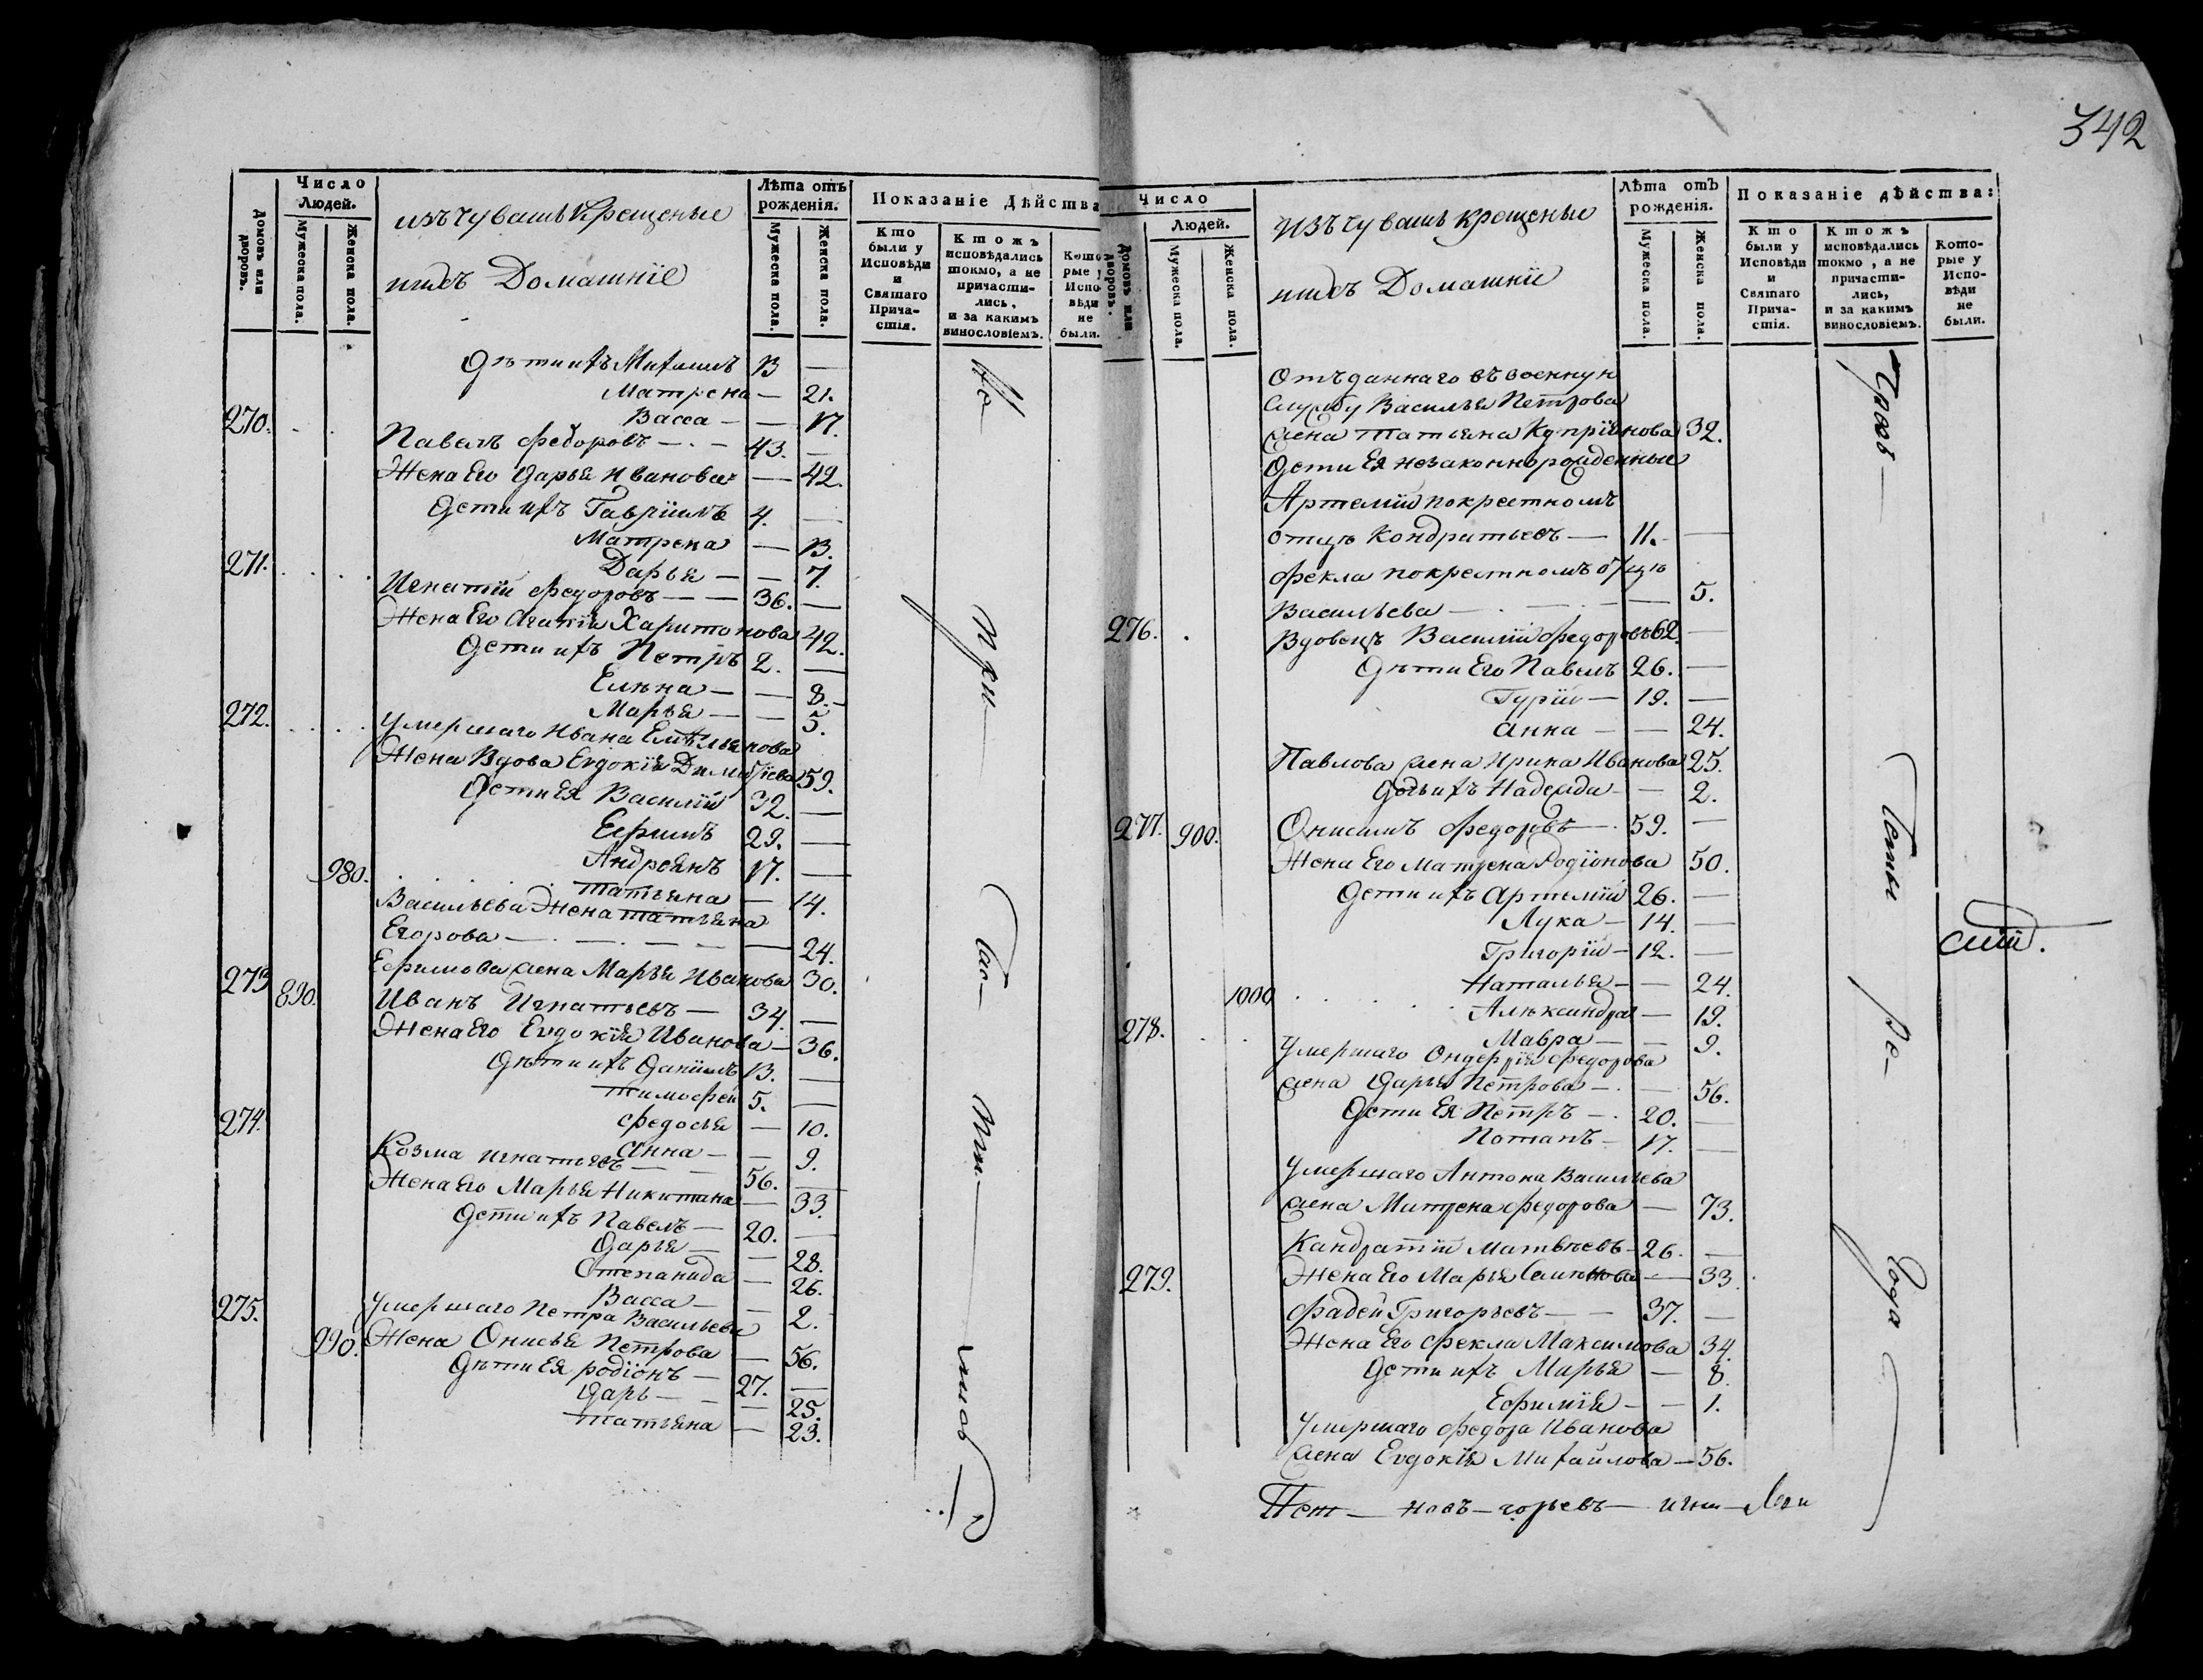 Число
Людей.
Лѣта отъ
рожденія.
Показаніе Дѣйства
Домовъ или
дворовъ.
Мужеска пола.
Женска пола.
изъ чувашъ Крещеные
итѣхъ Домашніе
Мужеска пола.
Женска пола.
Кто
были у
Исповѣди
и
Святаго
Прича-
стія.
Ктожъ
исповѣдались
токмо, а не
причасти-
лись,
и за какимъ
винословіемъ.
Кото
рые у
Испо-
вѣди
не
были.
Дѣти ихъ Михаилъ 13 —
Матрена — 21.
Васса — — 17.
270. Павелъ Федоровъ — 43. —
Жена Его Дарья Иванова — 42.
Дети ихъ Гавріилъ 4. —
Матрена — 13.
Дарья — — 7.
271. Игнатій Федоровъ — — 36. —
Жена Его Агафія Харитонова 42.
Дети ихъ Петръ 2. —
Елѣна — — 8.
Марья — — 5.
272. умершаго Ивана Емѣльянова
Жена Вдова Евдокія Димитріева 59.
Дети Ея Василій 32. —
Ефимъ 29. —
Андреянъ 17. —
980. Татьяна — 14.
Васильева Жена Татьяна
Егорова — — — — 24.
Ефимова жена Марья Иванова 30.
273 890. Иванъ Игнатьевъ — 34. —
Жена Его Евдокія Иванова — 36.
Дѣти ихъ Даніилъ 13. —
Тимофей 5. —
Федосья — 10.
Анна — — 9.
274. Козма Игнатьевъ — — 56. —
Жена Его Марья Никитина — 33.
Дети ихъ Павелъ — 20. —
Дарья — — 28.
Степанида — 26.
Васса — — 2.
275. умершаго Петра Васильева
990. Жена Онисья Петрова — 56.
Дѣти Ея Родіонъ — 27. —
Дарь — — 25.
Татьяна — 23.
При —
час—
342
Число
Людей.
Лѣта отъ
рожденія.
Показаніе дѣйства:
Домовъ или
дворовъ.
Мужеска пола.
Женска пола.
изъ чувашъ крещеные
итѣхъ Домашніе
Мужеска пола.
Женска пола.
Кто
были у
Исповѣди
и
Святаго
Прича-
стія.
Ктожъ
исповѣдались
токмо, а не
причасти-
лись,
и за какимъ
винословіемъ.
Кото-
рые у
Испо-
вѣди
не
были.
Отъданнаго въ военную
службу Василья Петрова
жена Татьяна Купріянова 32.
Дети Ея незаконнорожденные
Артемій по крестномъ
отцѣ Кондратьевъ — 11. —
Фекла по крестномъ отцѣ
Васильева — — — 5.
276. Вдовецъ Василій Федоровъ 62. —
Дѣти Его Павелъ 26. —
Гурій — 19. —
Анна — — 24.
Павлова жена Ирина Иванова 25.
Дочь ихъ Надежда — — 2.
277. 900. Онисимъ Федоровъ — 59. —
Жена Его Матрена Родіонова 50.
Дети ихъ Артемій 26. —
Лука — 14. —
Григорій — 12. —
Наталья — — 24.
1000 Алѣксандра — 19.
Мавра — — 9.
278. умершаго Федорова
жена Дарья Петрова — — 56.
Дети Ея Петръ — 20. —
Потапъ — 17. —
умершаго Антона Васильева
жена Матрена Федорова — 73.
Кандратій Матвѣевъ — 26. —
Жена Его Марья — 33.
279. Фадей Григорьевъ — — 37. —
Жена Его Фекла Максимова 34.
Дети ихъ Марья — 8.
Ефимія — — 1.
умершаго Федора Иванова
жена Евдокія Михайлова — 56.
Пет — ровъ — горьевъ — игна —
года